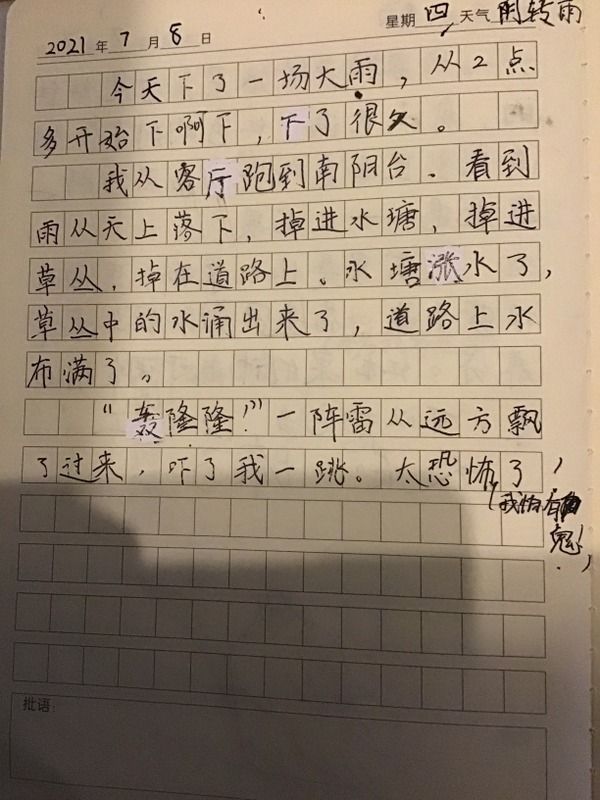 2021年7月8日 星期四 天气 阴转雨
今天下了一场大雨，从2点
多开始下啊下，下了很久。
我从客厅跑到南阳台。看到
雨从天上落下，掉进水塘，掉进
草丛，掉在道路上。水塘涨水了，
草丛中的水涌出来了，道路上水
布满了。
“轰隆隆！”一阵雷从远方飘
了过来，吓了我一跳。太恐怖了，
（我怕有
鬼！
批语：